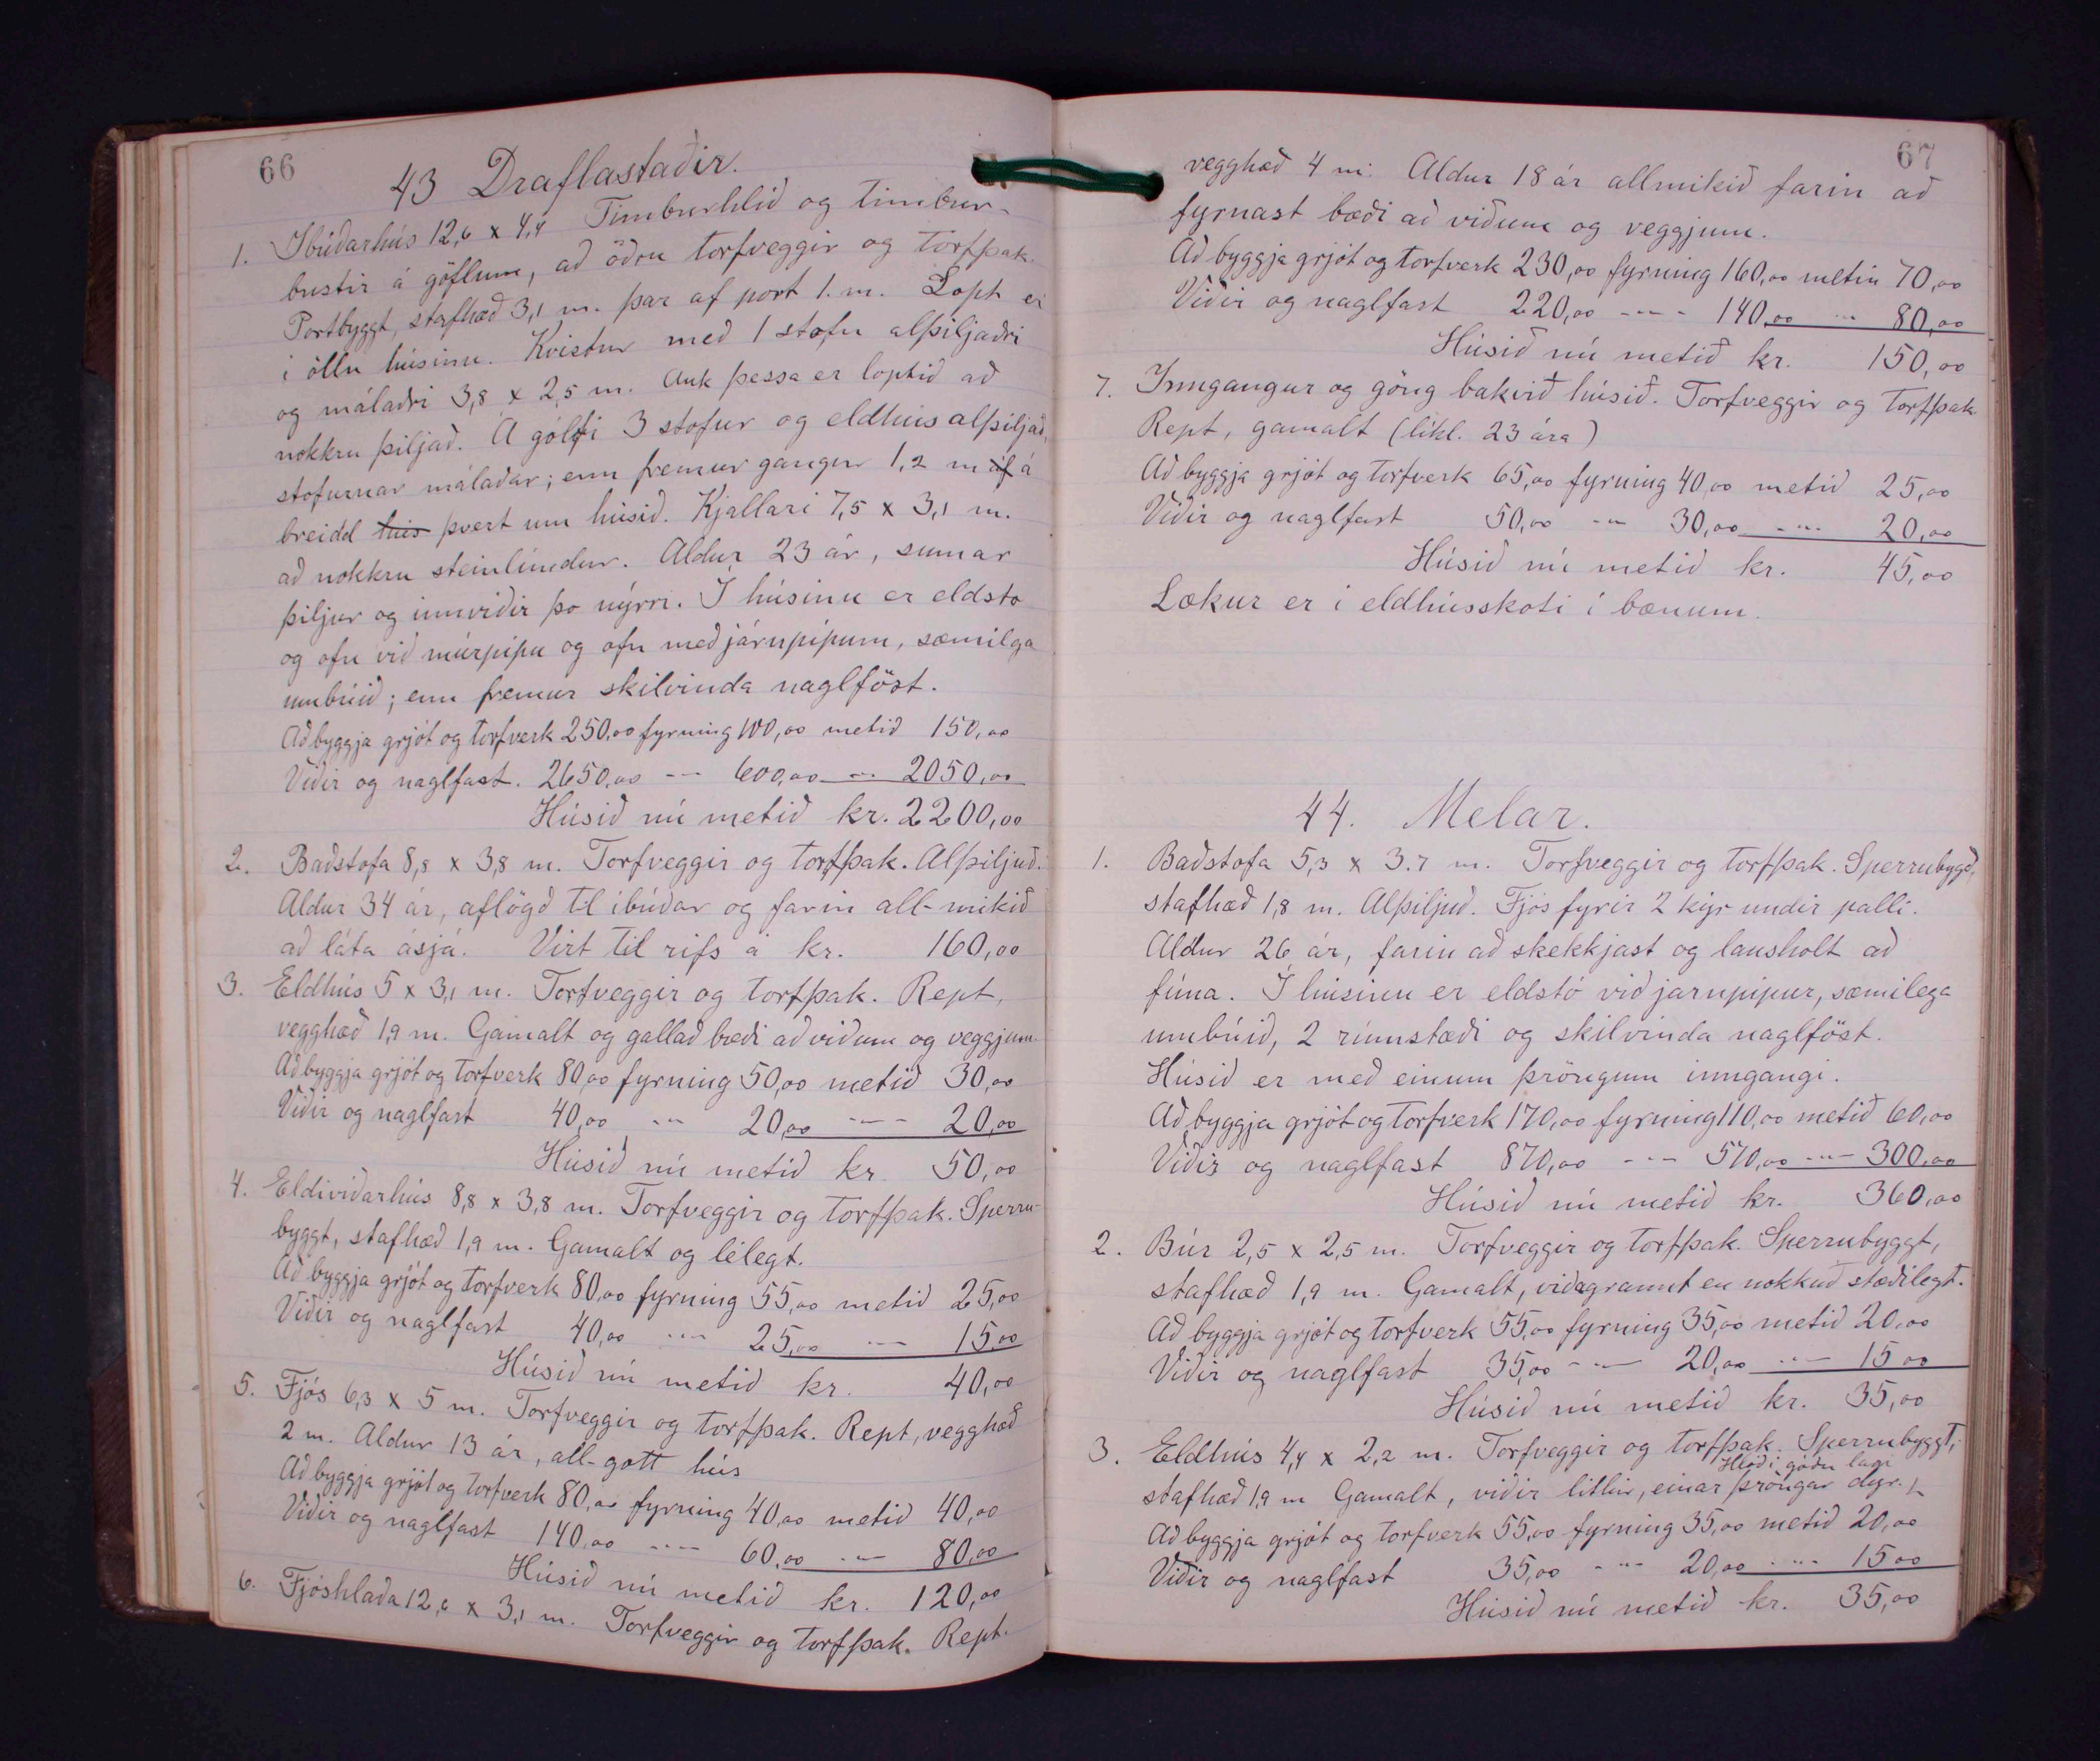 66
43 Draflastaðir.
1. Íbúðarhús 12,6 x 4,4 Timburhlið og timbur-
bustir á göflum, að öðru torfveggir og torfþak.
Portbyggt, stafhæð 3,1 m. þar af port 1. m. Lopt er
í öllu húsinu. Kvistur með 1 stofu alþiljaðri
og málaðri 3,8 x 2,5 m. Auk þessa er loptið að
nokkru þiljað. Á gólfi 3 stofur og eldhús alþiljað,
stofurnar málaðar; enn fremur gangur 1,2 m af á
breidd hús þvert um húsið. Kjallari 7,5 x 3,1 m.
að nokkru steinlímdur. Aldur 23 ár, sumar
þiljur og innviðir þo nýrri. Í húsinu er eldsto
og ofn við múrpípu og ofn með járnpípum, sæmilga
umbúið; enn fremur skilvinda naglföst.
Að byggja grjót og torfverk 250,00 fyrning 100,00 metið 150,00
Viðir og naglfast. 2650,00 --- 600,00 -"- 2050,00
Húsið nú metið kr. 2200,00
2. Baðstofa 8,8 x 3,8 m. Torfveggir og torfþak. Alþiljuð.
Aldur 34 ár, aflögð til íbúðar og farin all-mikið
að láta ásjá. Virt til rifs á kr. 160,00
3. Eldhús 5 x 3,1 m. Torfveggir og torfþak. Rept,
vegghæð 1,9 m. Gamalt og gallað bæði að viðum og veggjum.
Að byggja grjót og torfverk 80,00 fyrning 50,00 metið 30,00
Viðir og naglfast 40,00 -"- 20,00 -"- 20,00
Húsið nú metið kr. 50,00
4. Eldiviðarhús 8,8 x 3,8 m. Torfveggir og torfþak. Sperru-
byggt, stafhæð 1,9 m. Gamalt og lélegt.
Að byggja grjót og torfverk 80,00 fyrning 55,00 metið 25,00
Viðir og naglfast 40,00 -"- 25,00 -"- 15,00
Húsið nú metið kr. 40,00
5. Fjós 6,3 x 5 m. Torfveggir og torfþak. Rept, vegghæð
2 m. Aldur 13 ár, all-gott hús
Að byggja grjót og torfverk 80,00 fyrning 40,00 metið 40,00
Viðir og naglfast 140,00 -"- 60,00 -"- 80,00
Húsið nú metið kr. 120,00
6. Fjóshlaða 12,6 x 3,1 m. Torfveggir og torfþak. Rept.
67
vegghæð 4 m. Aldur 18 ár allmikið farin að
fyrnast bæði að viðum og veggjum.
Að byggja grjót og torfverk 230,00 fyrning 160,00 metin 70,00
Viðir og naglfast 220,00 -"- 140,00 -"- 80,00
Húsið nú metið kr. 150,00
7. Inngangur og göng bakvið húsið. Torfveggir og torfþak
Rept, gamalt (líkl. 23 ára)
Að byggja grjót og torfverk 65,00 fyrning 40,00 metið 25,00
Viðir og naglfast 50,00 -"- 30,00 -"- 20,00
Húsið nú metið kr. 45,00
Lækur er í eldhússkoti í bænum.
44. Melar.
1. Baðstofa 5,3 x 3.7 m. Torfveggir og torfþak. Sperrubygð,
stafhæð 1,8 m. Alþiljuð. Fjós fyrir 2 kýr undir palli.
Aldur 26 ár, farin að skekkjast og lausholt að
fúna. Í húsinu er eldstó við jarnpipur, sæmilega
umbúið, 2 rúmstæði og skilvinda naglföst.
Húsið er með einum þröngum inngangi.
Að byggja grjót og torfverk 170,00 fyrning 110,00 metið 60,00
Viðir og naglfast 870,00 --- 570,00 -"- 300,00
Húsið nú metið kr. 360,00
2. Búr 2,5 x 2,5 m. Torfveggir og torfþak. Sperrubyggt,
stafhæð 1,9 m. Gamalt, viðagrannt en nokkuð stæðilegt.
Að byggja grjót og torfverk 55,00 fyrning 35,00 metið 20,00
Viðir og naglfast 35,00 -"- 20,00 -"- 15 00
Húsið nú metið kr. 35,00
3. Eldhús 4,4 x 2,2 m. Torfveggir og torfþak. Sperrubyggt,
Hlóð í góðu lagi
stafhæð 1,9 m Gamalt, viðir litlir, einar þröngar dyr.
Að byggja grjót og torfverk 55,00 fyrning 35,00 metið 20,00
Viðir og naglfast 35,00 -"- 20,00 -"- 15 00
Húsið nú metið kr. 35,00